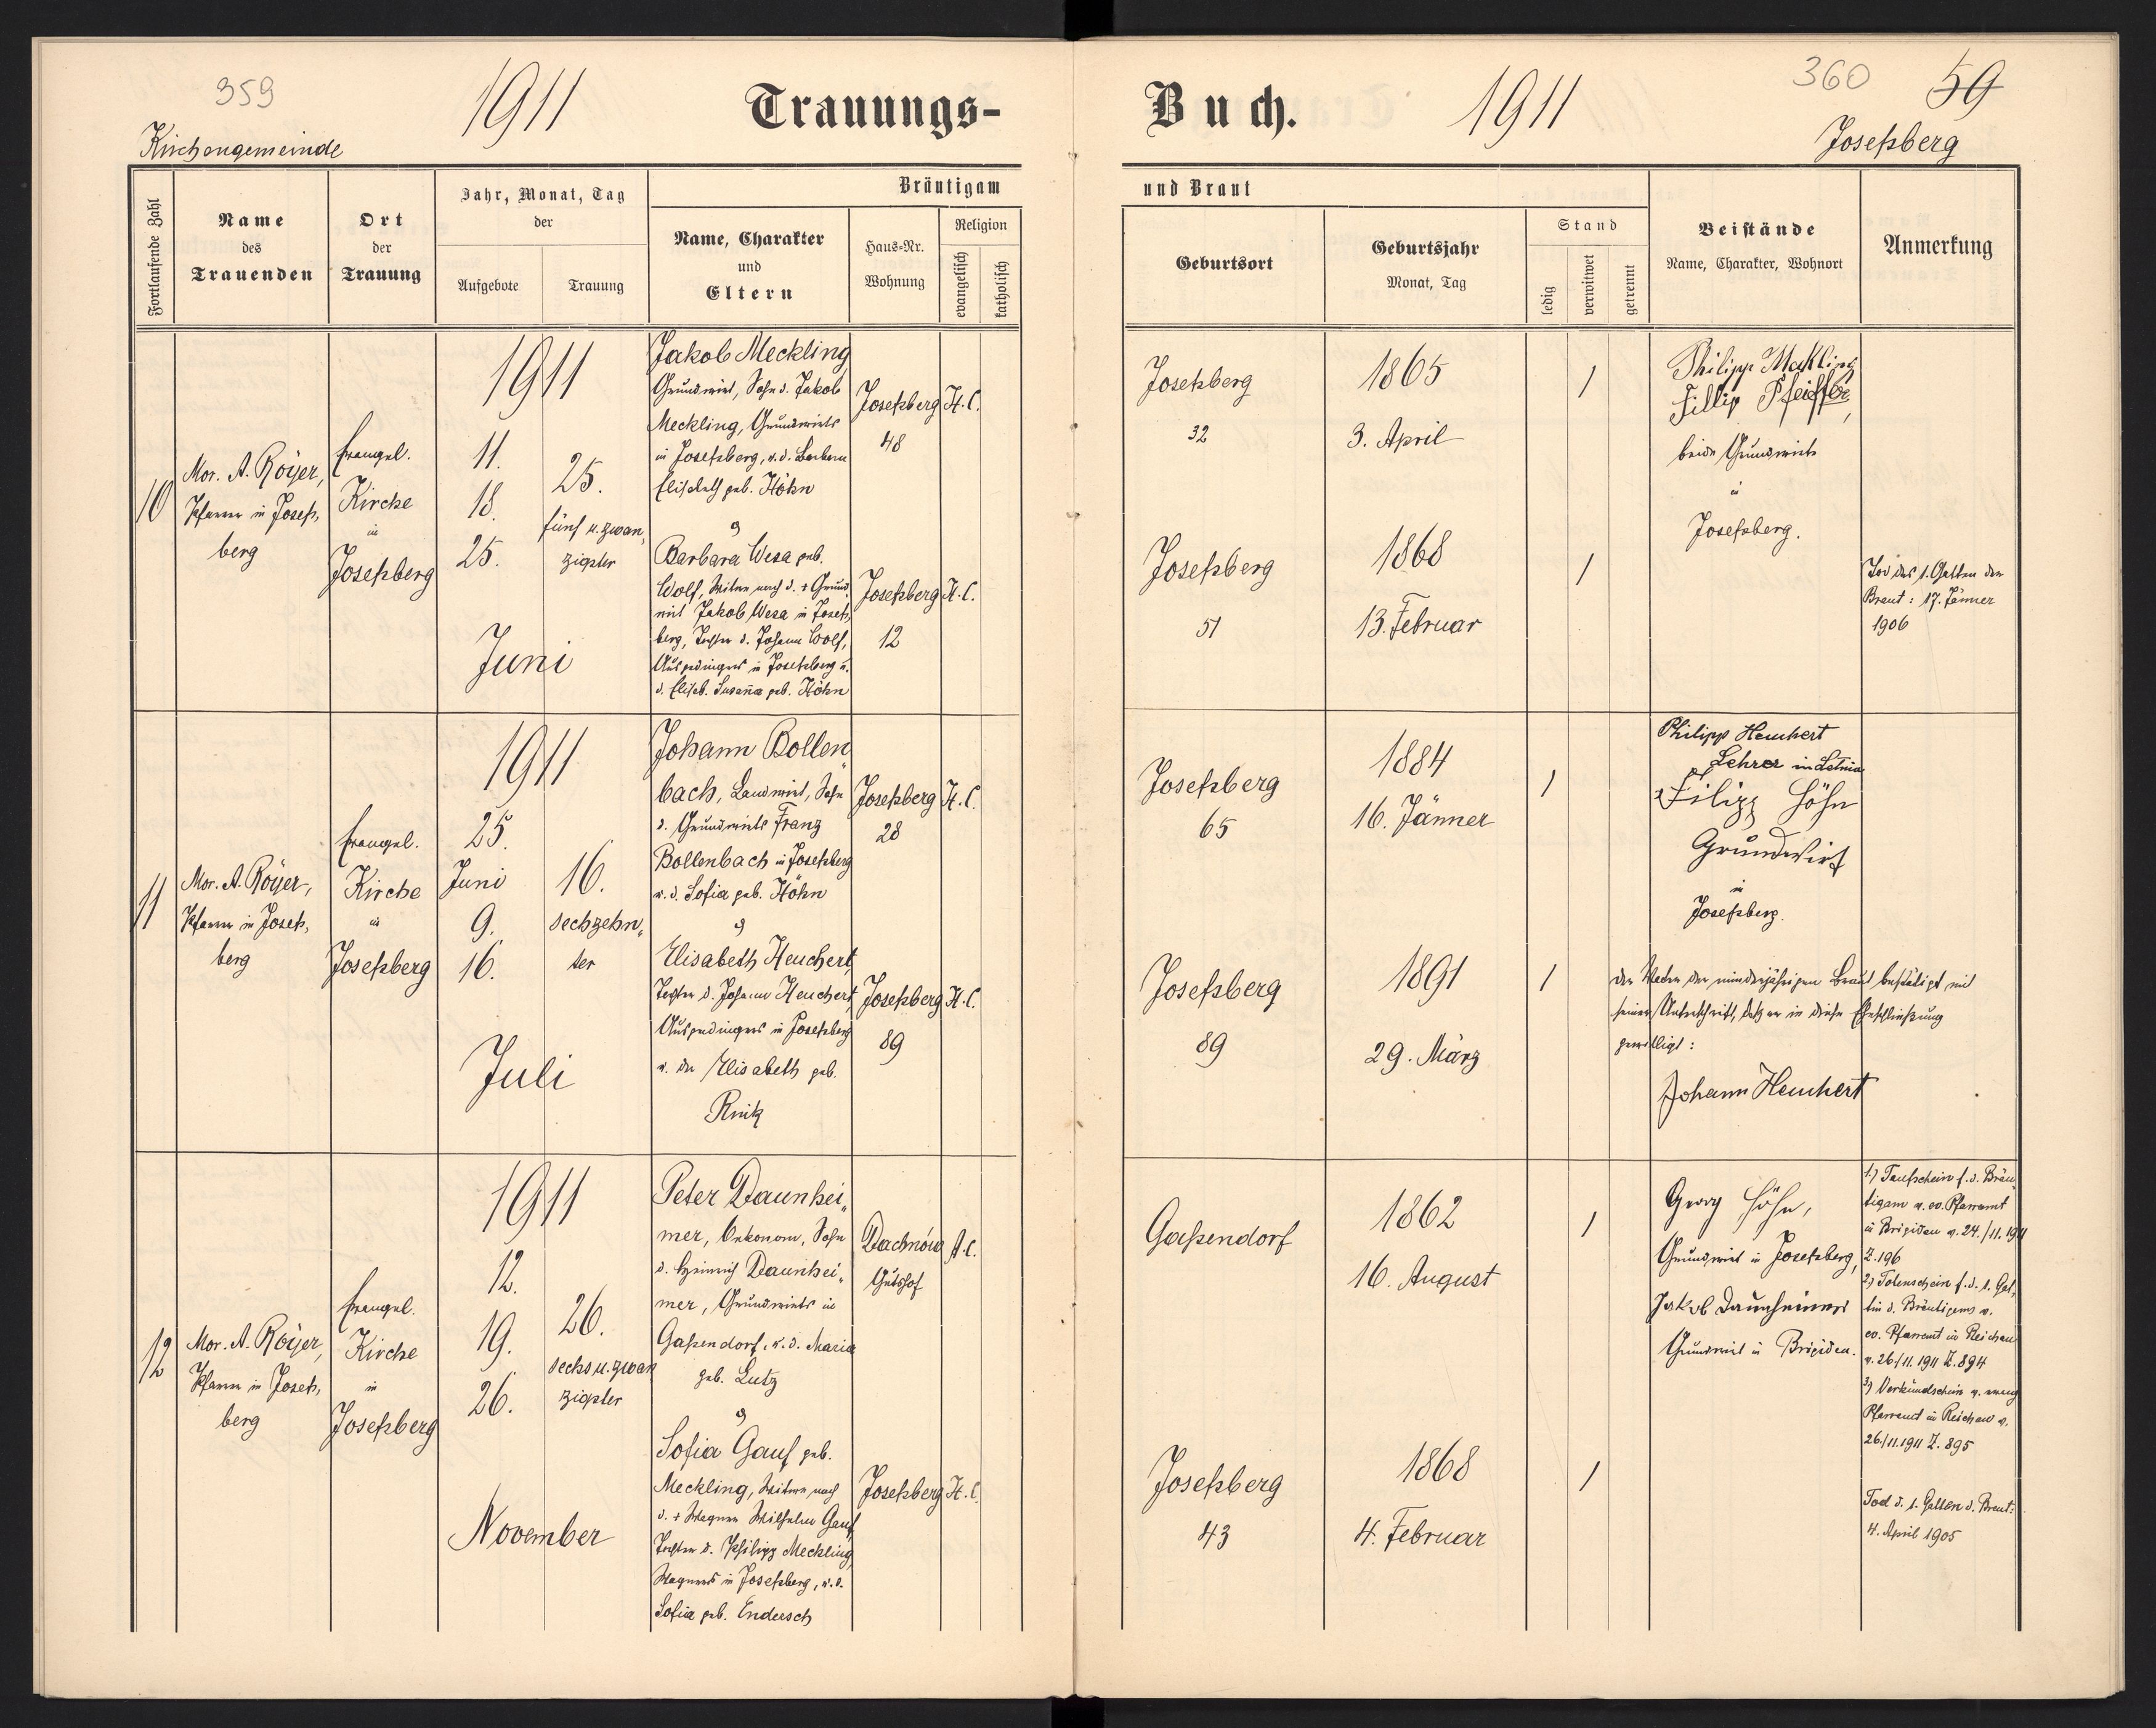 359
1911
Trauungs-
Kirchengemeinde
Fortlaufende Zahl
Name
des
Trauenden
Ort
der
Trauung
Jahr, Monat, Tag
der
Aufgebote
Trauung
Bräutigam
Name, Charakter
und
Eltern
Haus-Nr.
Wohnung
Religion
evangelisch
katholisch
10
Mor. A. Royer,
Pfarrer in Josefs,
berg
Evangel.
Kirche
in
Josefsberg
1911
11.
18.
25.
25.
fünf u. zwan,
zigster
Juni
Jakob Meckling
Grundwirt, Sohn d. Jakob
Meckling, Grundwirts
in Josefsberg, u. d. Barbara
Elisabeth geb. Höhn
&
Barbara Wesa geb.
Wolf, Witwe nach d. + Grund,
wirt Jakob Wesa in Josefs,
berg, Tochter d. Johann Wolf,
Ausgedingers in Josefsberg u.
d. Elisab. Susanna geb. Höhn
Josefsberg
48
H. C.
Josefsberg
12
H. C.
11
Mor. A. Royer,
Pfarrer in Josefs,
berg
Evangel.
Kirche
in
Josefsberg
1911
25.
Juni
9.
16.
16.
sechzehn,
ter
Juli
Johann Bollen,
bach, Landwirt, Sohn
d. Grundwirts Franz
Bollenbach in Josefsberg
u. d. Sofia geb. Höhn
&
Elisabeth Heuchert,
Tochter d. Johann Heuchert,
Ausgedingers in Josefsberg
u. der Elisabeth geb.
Rnik
Josefsberg
28
H. C.
Josefsberg
89
H. C.
12
Mor. A. Royer,
Pfarrer in Josefs,
berg
Evangel.
Kirche
in
Josefsberg
1911
12.
19.
26.
26.
sechs u. zwan
zigster
November
Peter Daunhei,
mer, Oekonom, Sohn
d. Heinrich Daunhei,
mer, Grundwirts in
Gaßendorf, u. d. Maria
geb. Lutz
&
Sofia Gauf geb.
Meckling, Witwe nach
d. + Wagner Wilhelm Gauf,
Tochter d. Philipp Meckling,
Wagners in Josefsberg, u. d.
Sofia geb. Endersch
Dachnów
Gutshof
A. C.
Josefsberg
H. C.
Buch.
1911
360
59
Josefsberg
und Braut
Geburtsort
Geburtsjahr
Monat, Tag
Stand
ledig
verwitwet
getrennt
Beistände
Name, Charakter, Wohnort
Anmerkung
Josefsberg
32
1865
3. April
1
Philipp Mekling
Fillip Pfeiffer,
beide Grundwirte
in
Josefsberg.
Josefsberg
51
1868
13. Februar
1
Tod des 1. Gatten der
Braut: 17. Jänner
1906
Josefsberg
65
1884
16. Jänner
1
Philipp Heuchert
Lehrer in Letnia
Filipp Höhn
Grundwirt
in
Josefsberg.
Josefsberg
89
1891
29. März
1
Der Vater der minderjährigen Braut bestätigt mit
seiner Unterschrift, daß er in diese Eheschließung
gewilligt:
Johann Heuchert
Gaßendorf
1862
16. August
1
Georg Höhn,
Grundwirt in Josefsberg,
Jakob Daunheimer
Grundwirt in Brigidau.
1.) Taufschein f. d. Bräu,
tigam v. ev. Pfarramt
in Brigidau v. 24./11. 1911
Z. 196
2) Totenschein f. d. 1. Gat,
tin d. Bräutigams v.
ev. Pfarramt in Reichau
v. 26./11. 1911 Z. 894
3) Verkündschein v. evang
Pfarramt in Reichau v.
26./11. 1911 Z. 895
Josefsberg
43
1868
4. Februar
1
Tod d. 1. Gatten d. Braut:
4. April 1905